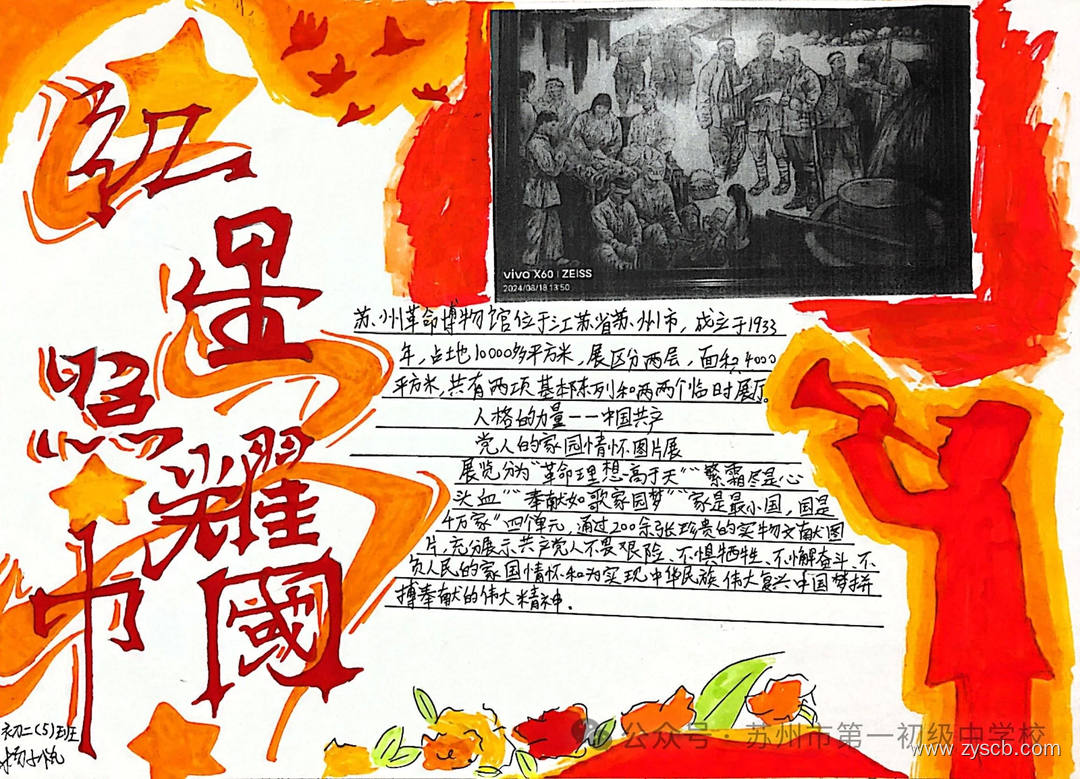 红星照耀中国
vivo X60 | ZEISS
2024/08/18 13:50
苏州革命博物馆位于江苏省苏州市，成立于1933
年，占地10000多平方米，展区分两层，面积4000
平方米，共有两项基本陈列和两两个临时展厅。
人格的力量——中国共产
党人的家园情怀图片展
展览分为“革命理想高于天”“繁霜尽是心
头血”“奉献如歌家园梦”“家是最小国，国是
千万家”四个单元，通过200余张珍贵的实物文献图
片，充分展示共产党人不畏艰险、不惧牺牲、不懈奋斗、不
负人民的家国情怀和为实现中华民族伟大复兴中国梦拼
搏奉献的伟大精神.
初二(5)班
杨
公众号·苏州市第一初级中学校
www.zyscb.com